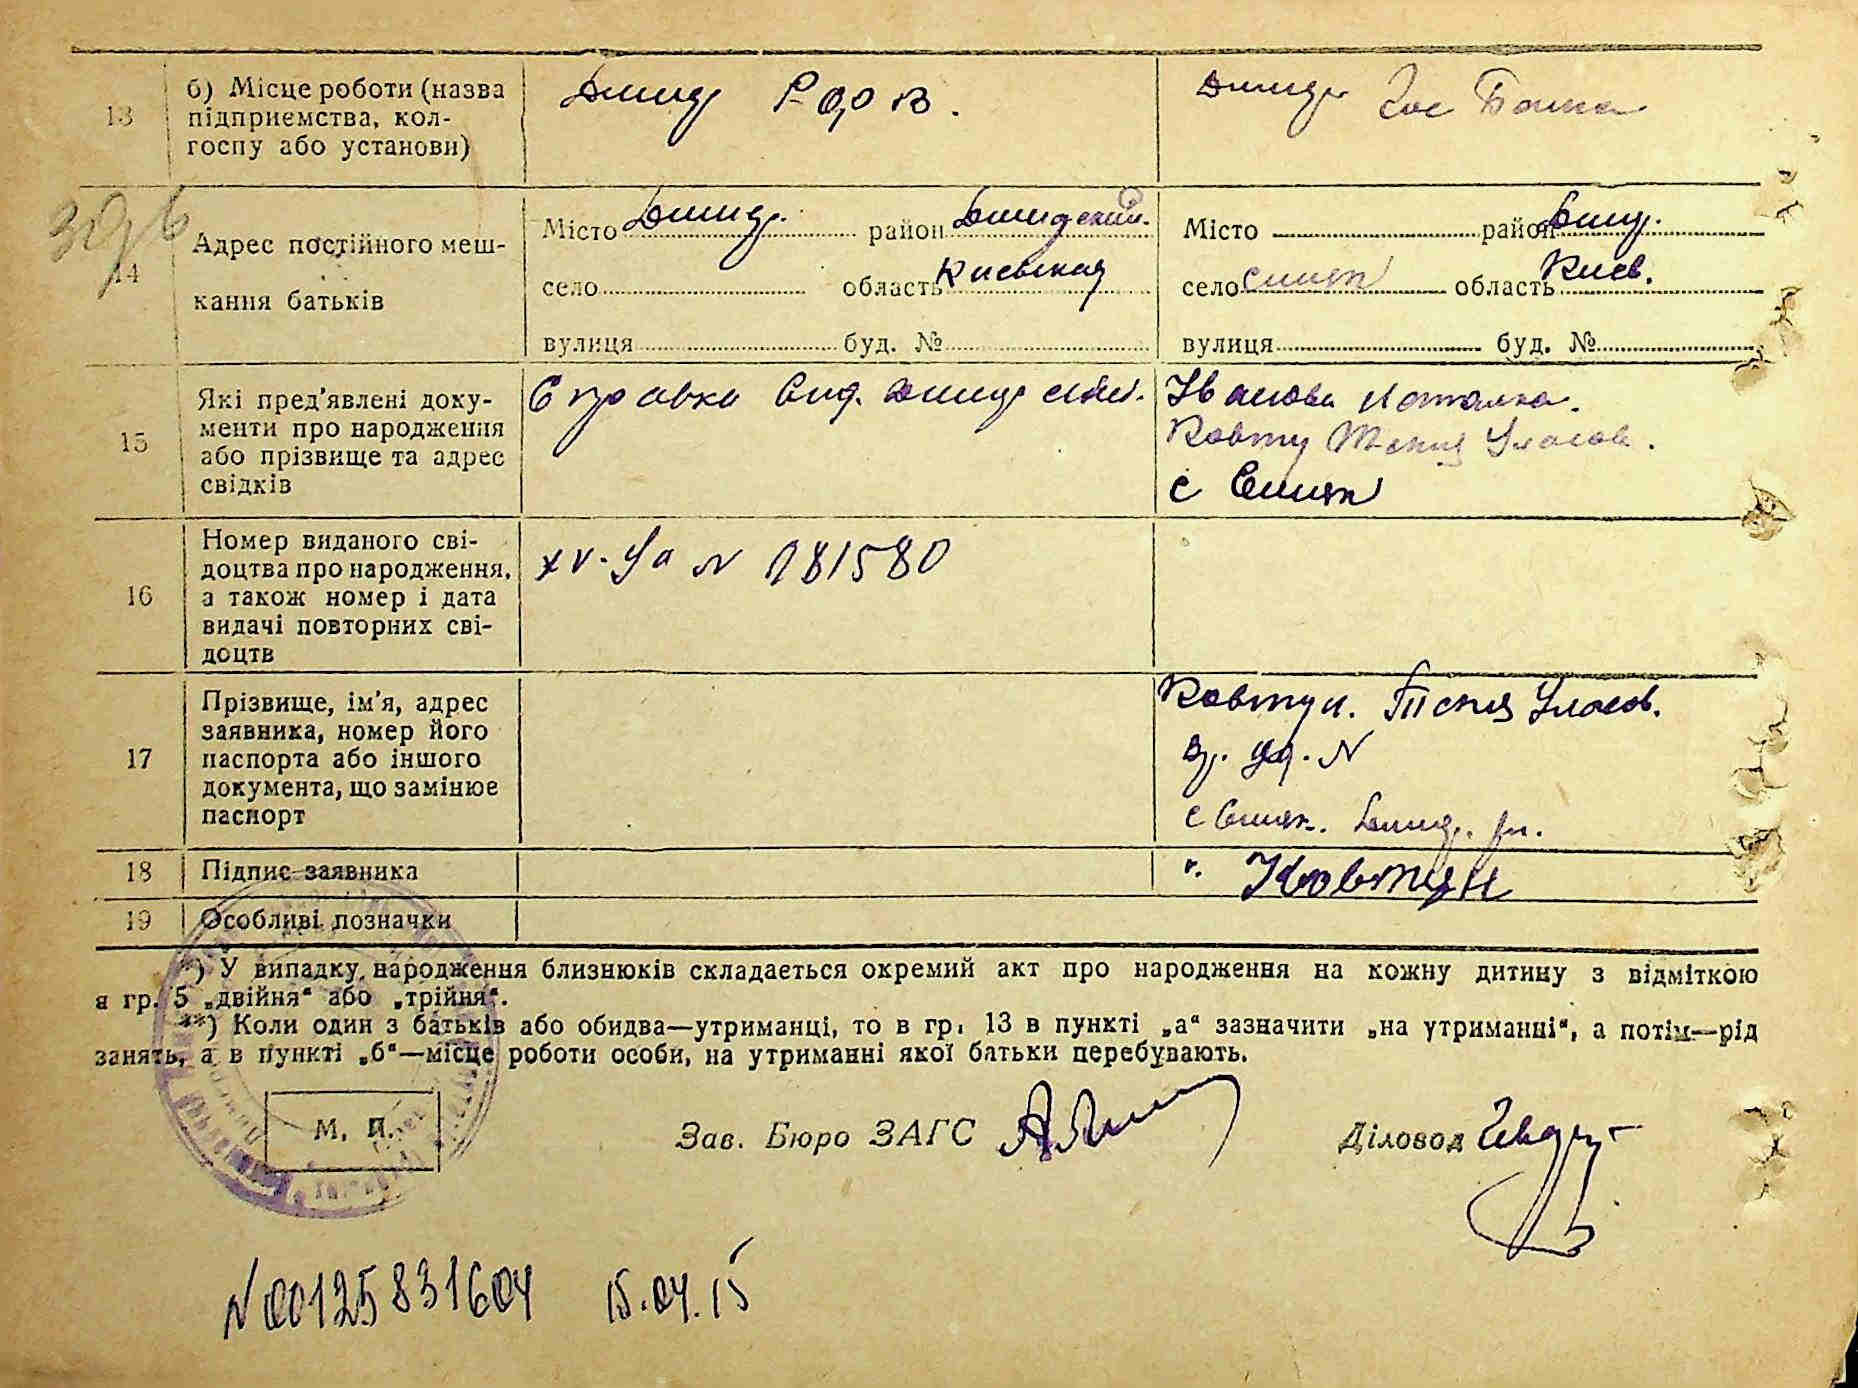 13
б) Місце роботи (назва
підприємства, кол-
госпу або установи)
Димер
Димер Гос Банка
14
Адрес постійного меш-
кання батьків
Місто Димер. район Димерский.
село область Киевская
вулиця буд. №
Місто район Димер.
село Синяк область Киев.
вулиця буд. №
15
Які пред'явлені доку-
менти про народження
або прізвище та адрес
свідків
Справка Димерской.
Іванова Наталка.
Ковтун Уласов.
с Синяк
16
Номер виданого сві-
доцтва про народження,
а також номер і дата
видачі повторних сві-
доцтв
XV-Уа N 181580
17
Прізвище, ім'я, адрес
заявника, номер його
паспорта або іншого
документа, що замінює
паспорт
Ковтун. Уласов.
с Синяк. Димер. рн.
18
Підпис заявника
Ковтун
19
Особливі позначки
*) У випадку народження близнюків складається окремий акт про народження на кожну дитину з відміткою
в гр. 5 „двійня“ або „трійня“.
**) Коли один з батьків або обидва—утриманці, то в гр. 13 в пункті „а“ зазначити „на утриманні“, а потім—рід
занять, а в пункті „б“—місце роботи особи, на утриманні якої батьки перебувають.
М. П.
Зав. Бюро ЗАГС
Діловод
N00125831604 15.04.15